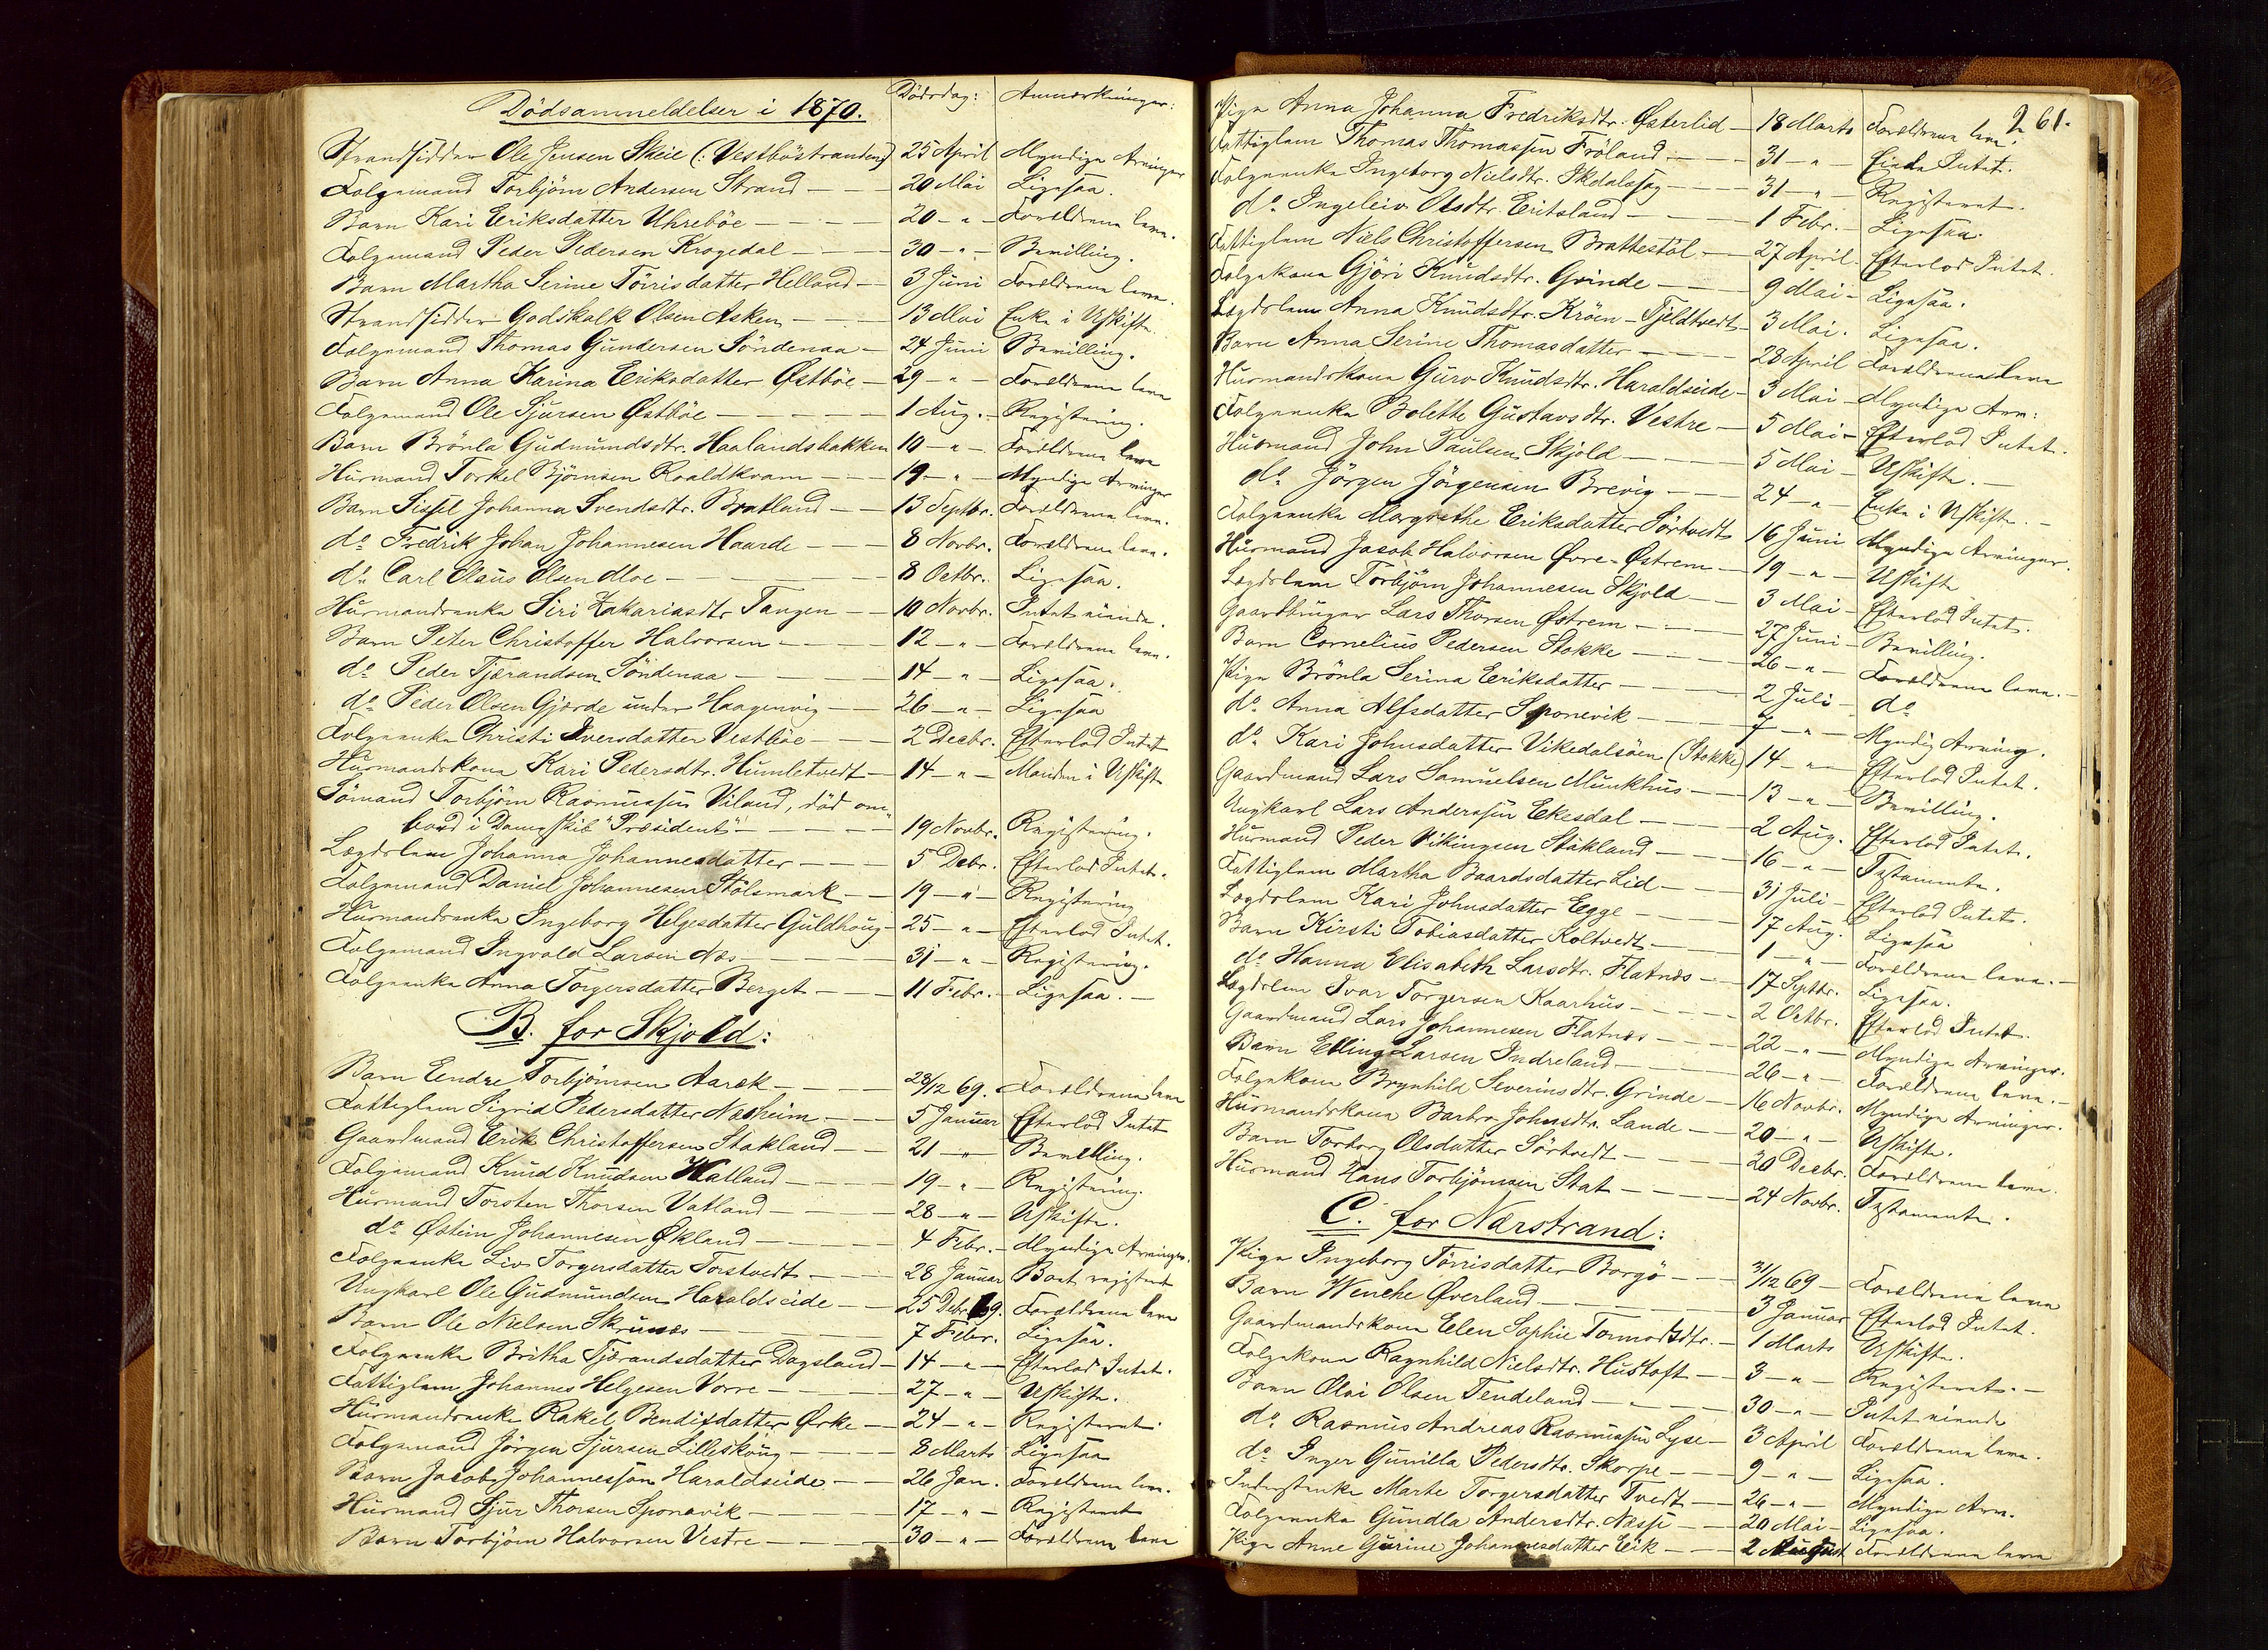 Dödsanmeldelser i 1870. Dödsdag: Anmærkninger:
Strandsidder Ole Jensen Skeie (: Vestböstranden) 25 April Myndige Arvinger
Folgemand Torbjörn Andersen Strand — 20 Mai Ligesaa.
Barn Kari Eriksdatter Uhreböe — 20 — " — Forældrene leve.
Folgemand Peder Pedersen Krogedal — 30 — " — Bevilling.
Barn Martha Serine Törrisdatter Helland — 3 Juni Forældrene leve.
Strandsidder Godskalk Olsen Asken — 13 Mai Enke i Uskifte.
Folgemand Thomas Gundersen Söndenaa — 24 Juni Bevilling.
Barn Anna Karina Eriksdatter Østböe — 29 — " — Forældrene leve
Folgemand Ole Sjursen Østböe — 1 Aug. — Registering.
Barn Brönla Gudmundsdtr. Haalandsbakken 10 — " — Forældrene leve
Husmand Torkel Bjömsen Roaldkvam — 19 — " — Myndige Arvinger
Barn Sissel Johanna Svendsdtr. Bratland — 13 Septbr. Forældrene leve.
do Fredrik Johan Johannesen Haarde — 8 Novbr. Forældrene leve.
do Carl Olaus Olsen Moe — 8 Octbr. Ligesaa.
Husmandsenke Siri Zakariasdtr Tangen — 10 Novbr. Intet eiende.
Barn Peter Christoffer Halvorsen — 12 — " — Forældrene leve.
do Peder Tjerandsen Söndenaa — 14 — " — Ligesaa.
do Peder Olsen Gjærde under Haagenvig — 26 — " — Ligesaa
Folgeenke Christi Iversdatter Vestböe — 2 Decbr. Efterlod Intet
Husmandskone Kari Pedersdtr. Humletvedt — 14 — " — Manden i Uskifte
Sömand Torbjörn Rasmussen Viland, död om=
bord i Dampskib "Præsident" — 19 Novbr. Registering.
Lægdslem Johanna Johannesdatter — 5 Debr. Efterlod Intet.
Folgemand Daniel Johannesen Stölsmark — 19 — " — Registering
Husmandsenke Ingeborg Helgesdatter Guldhoug — 25 — " — Efterlod Intet.
Folgemand Ingvald Larsen Næs — 31 — " — Registering.
Folgeenke Anna Torgersdatter Berget — 11 Febr. — Ligesaa. —
B. for Skjold:
Barn Eendre Torbjörnsen Aaræk — 28/12 69. Forældrene leve
Fattiglem Sigrid Pedersdatter Næsheim — 5 Januar Efterlod Intet
Gaardmand Erik Christoffersen Stakland — 21 — " — Bevilling.
Folgemand Knud Knudsen Hatland — 19 — " — Registering.
Husmand Torsten Thorsen Vatland — 28 — " — Uskifte.
do Østein Johannesen Økland — 4 Febr. — Myndige Arvinger.
Folgeenke Liv Torgersdatter Torstvedt — 28 Januar Boet registeret
Ungkarl Ole Gudmundsen Haraldseide — 25 Debr. 69. Forældrene leve
Barn Ole Nielsen Skrunæs — 7 Febr. Ligesaa.
Folgeenke Britha Tjerandsdatter Dagsland — 14 — " — Efterlod Intet.
Fattiglem Johannes Helgesen Vorre — 27 — " — Uskifte.
Husmandsenke Rakel Benditsdatter Ørke — 24 — " — Registeret.
Folgemand Jörgen Sjursen Lilleskoug — 8 Marts Ligesaa
Barn Jacob Johannessen Haraldseide — 26 Jan. Forældrene leve.
Husmand Sjur Thorsen Sponevik — 17 — " — Registeret
Barn Torbjörn Halvorsen Vestre — 30 — " — Forældrene leve
261.
Pige Anna Johanna Fredriksdtr. Østerlid — 18 Marts Forældrene leve.
Fattiglem Thomas Thomassen Fröland — 31 — " Eiede Intet.
Folgeenke Ingeborg Nielsdtr. Ikdalssag — 31 — " Registeret.
do Ingeleiv Olsdtr. Eritsland — 1 Febr. — Ligesaa.
Fattiglem Niels Christoffersen Brattestöl — 27 April — Efterlod Intet.
Folgekone Gjöri Knudsdtr. Grinde — 9 Mai — Ligesaa.
Lægdslem Anna Knudsdtr. Kröen - Tjeldtvedt — 3 Mai. Ligesaa.
Barn Anna Serine Thomasdatter — 28 April Forældrene leve
Husmandskone Guro Knudsdtr. Haraldseide — 3 Mai — Myndige Arv:
Folgeenke Bolette Gustavsdtr. Vestre — 5 Mai — Efterlod Intet.
Husmand John Paulsen Skjold — 5 Mai — Uskifte. —
do Jörgen Jörgensen Brevig — 24 — " — Enke i Uskifte. —
Folgeenke Margrethe Eriksdatter Sörtvedt 16 Juni Myndige Arvinger.
Husmand Jacob Halvorsen Övre-Østrem — 19 — " — Uskifte
Lægdslem Torbjörn Johannesen Skjold — 3 Mai — Efterlod Intet.
Gaardbruger Lars Thorsen Østrem — 27 Juni — Bevilling.
Barn Cornelius Pedersen Stokke — 26 — " — Forældrene leve. —
Pige Brönla Serina Eriksdatter — 2 Juli — do
do Anna Alfsdatter Sponevik — 7 — " — Myndig Arving.
do Kari Johnsdatter Vikedalsöen (Stokke) 14 — " — Efterlod Intet.
Gaardmand Lars Samuelsen Munkhus — 13 — " — Bevilling.
Ungkarl Lars Anderssen Ekesdal — 2 Aug. Efterlod Intet.
Husmand Peder Vikingsen Stakland — 16 — " — Testamente.
Fattiglem Martha Baardsdatter Lid — 31 Juli — Efterlod Intet.
Lægdslem Kari Johnsdatter Egge — 17 Aug. Ligesaa
Barn Kirsti Tobiasdatter Koltvedt — 1 — " — Forældrene leve. —
do Hanna Elisabeth Larsdtr. Flatnæs — 17 Septbr. Ligesaa.
Lægdslem Ivar Torgersen Kaarhus — 2 Octbr. Efterlod Intet.
Gaardmand Lars Johannesen Flatnæs — 22 — " — Myndige Arvinger.
Barn Elling Larsen Indreland — 26 — " — Forældrene leve. —
Folgekone Brynhild Severinsdtr. Grinde — 16 Novbr. Myndige Arvinger.
Husmandskone Barbro Johnsdtr. Lande — 20 — " — Uskifte.
Barn Torborg Olsdatter Sörtvedt — 20 Decbr. Forældrene leve.
Husmand Hans Torbjörnsen Stat — 24 Novbr. Testamente.
C. for Nærstrand:
Pige Ingeborg Törrisdatter Borgö — 31/12 69 — Forældrene leve
Barn Wenche Øverland — 3 Januar Efterlod Intet.
Gaardmandskone Elen Sophie Tormodsdtr. — 1 Marts Uskifte.
Folgekone Ragnhild Nielsdtr. Hustoft — 3 — " — Registeret. —
Barn Olai Olsen Tendeland — 30 — " — Intet eiende
do Rasmus Andreas Rasmussen Lyse — 3 April Forældrene leve.
do Inger Gunilla Pedersdtr. Skorpe — 9 — " — Ligesaa.
Inderstenke Marte Torgersdatter Tvedt — 26 — " — Myndige Arv.
Folgeenke Gundla Andersdtr. Næsse — 20 Mai — Ligesaa.
Pige Anne Gurine Johannesdatter Eik — 2 August Forældrene leve